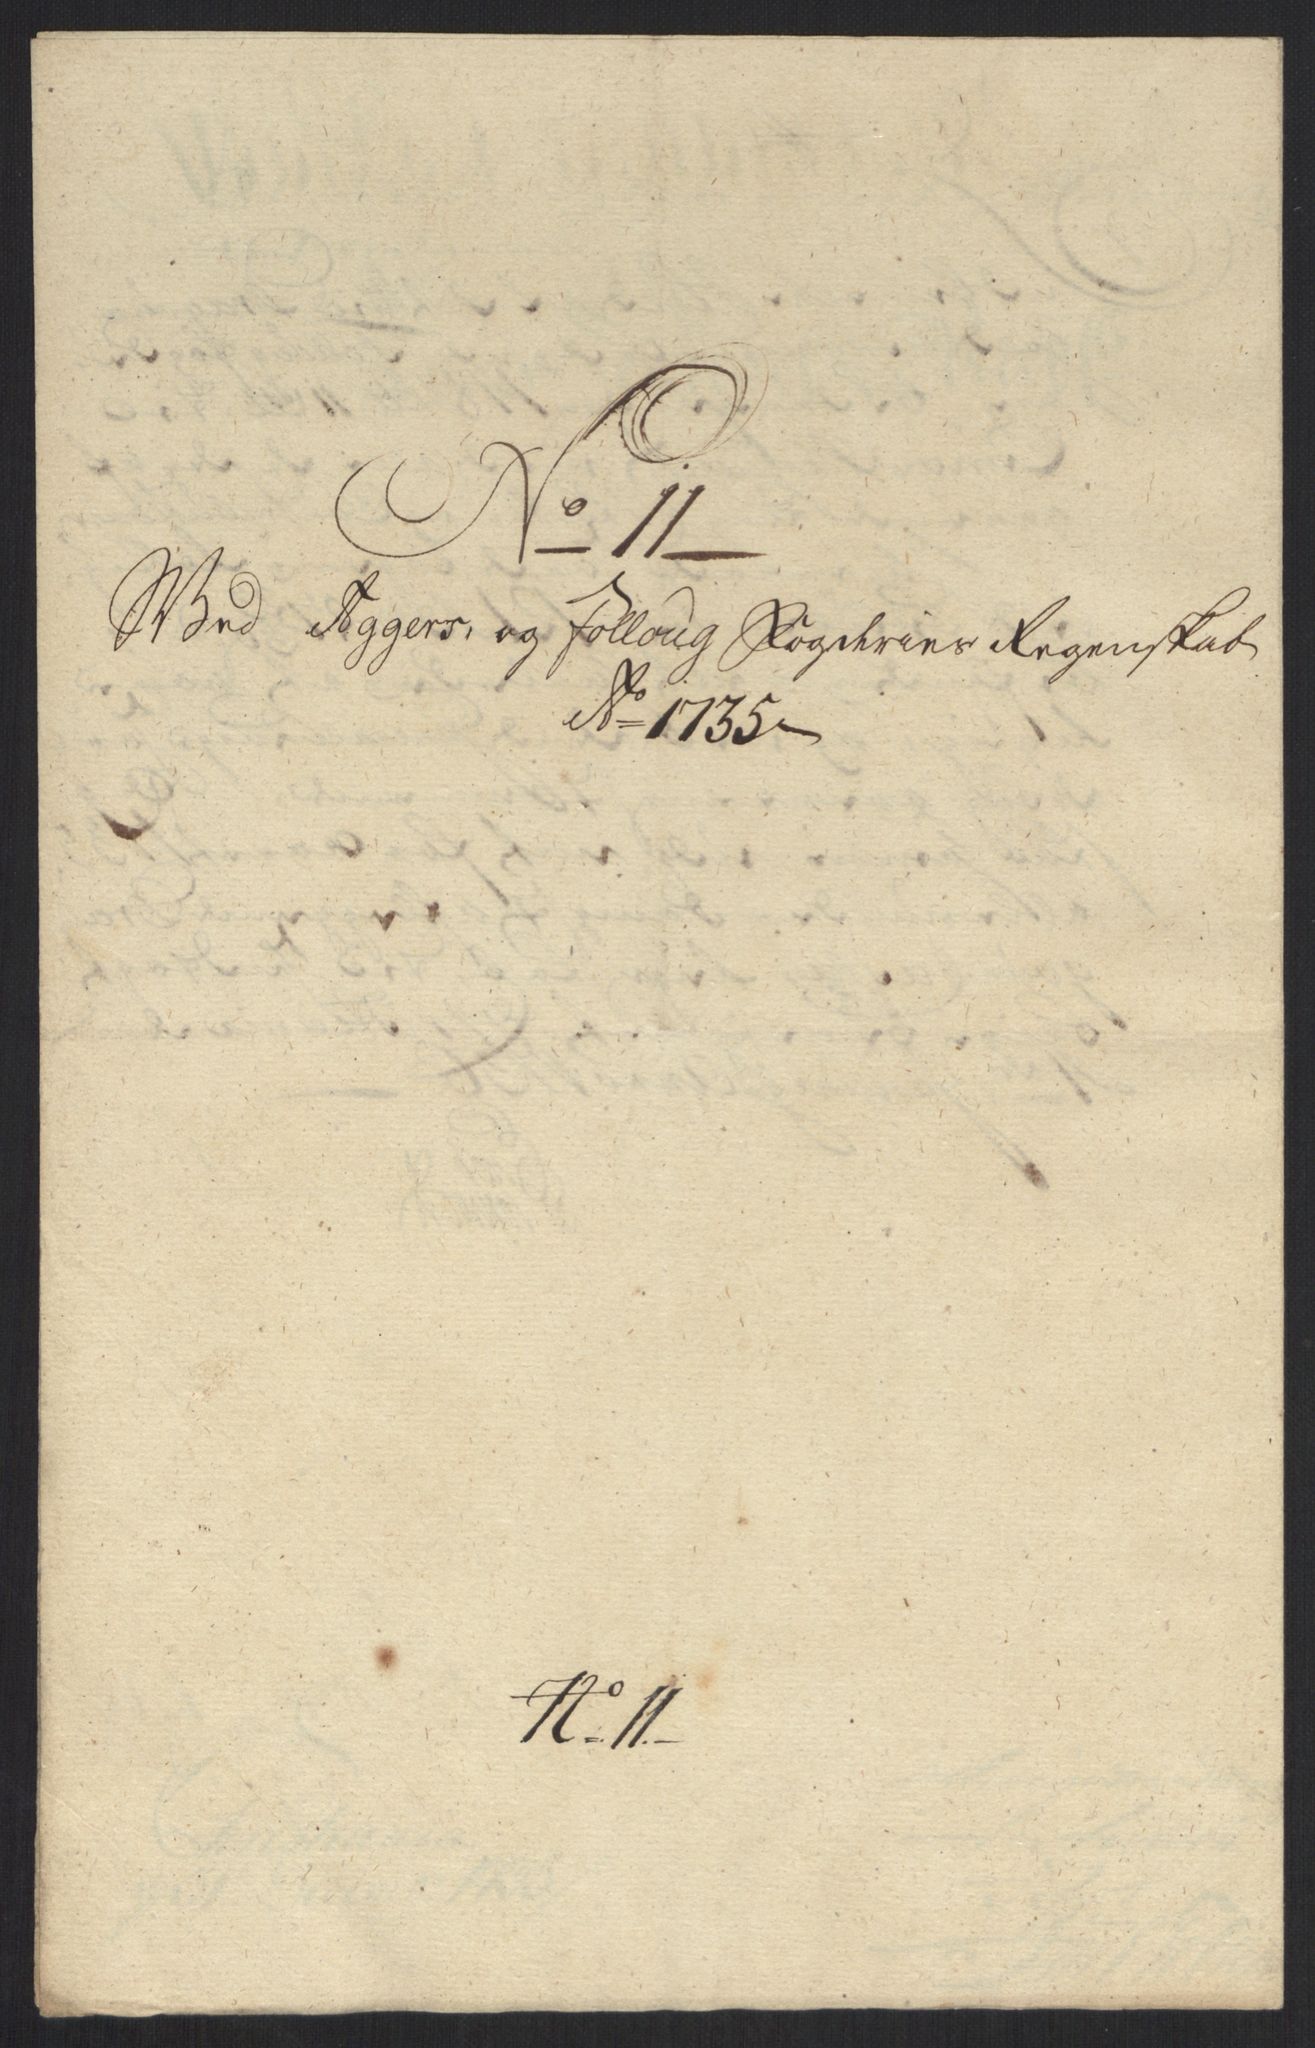 No 11
Wed Aggers, og Folloug Fogderies Regenskab
Ao 1735
No. 11.